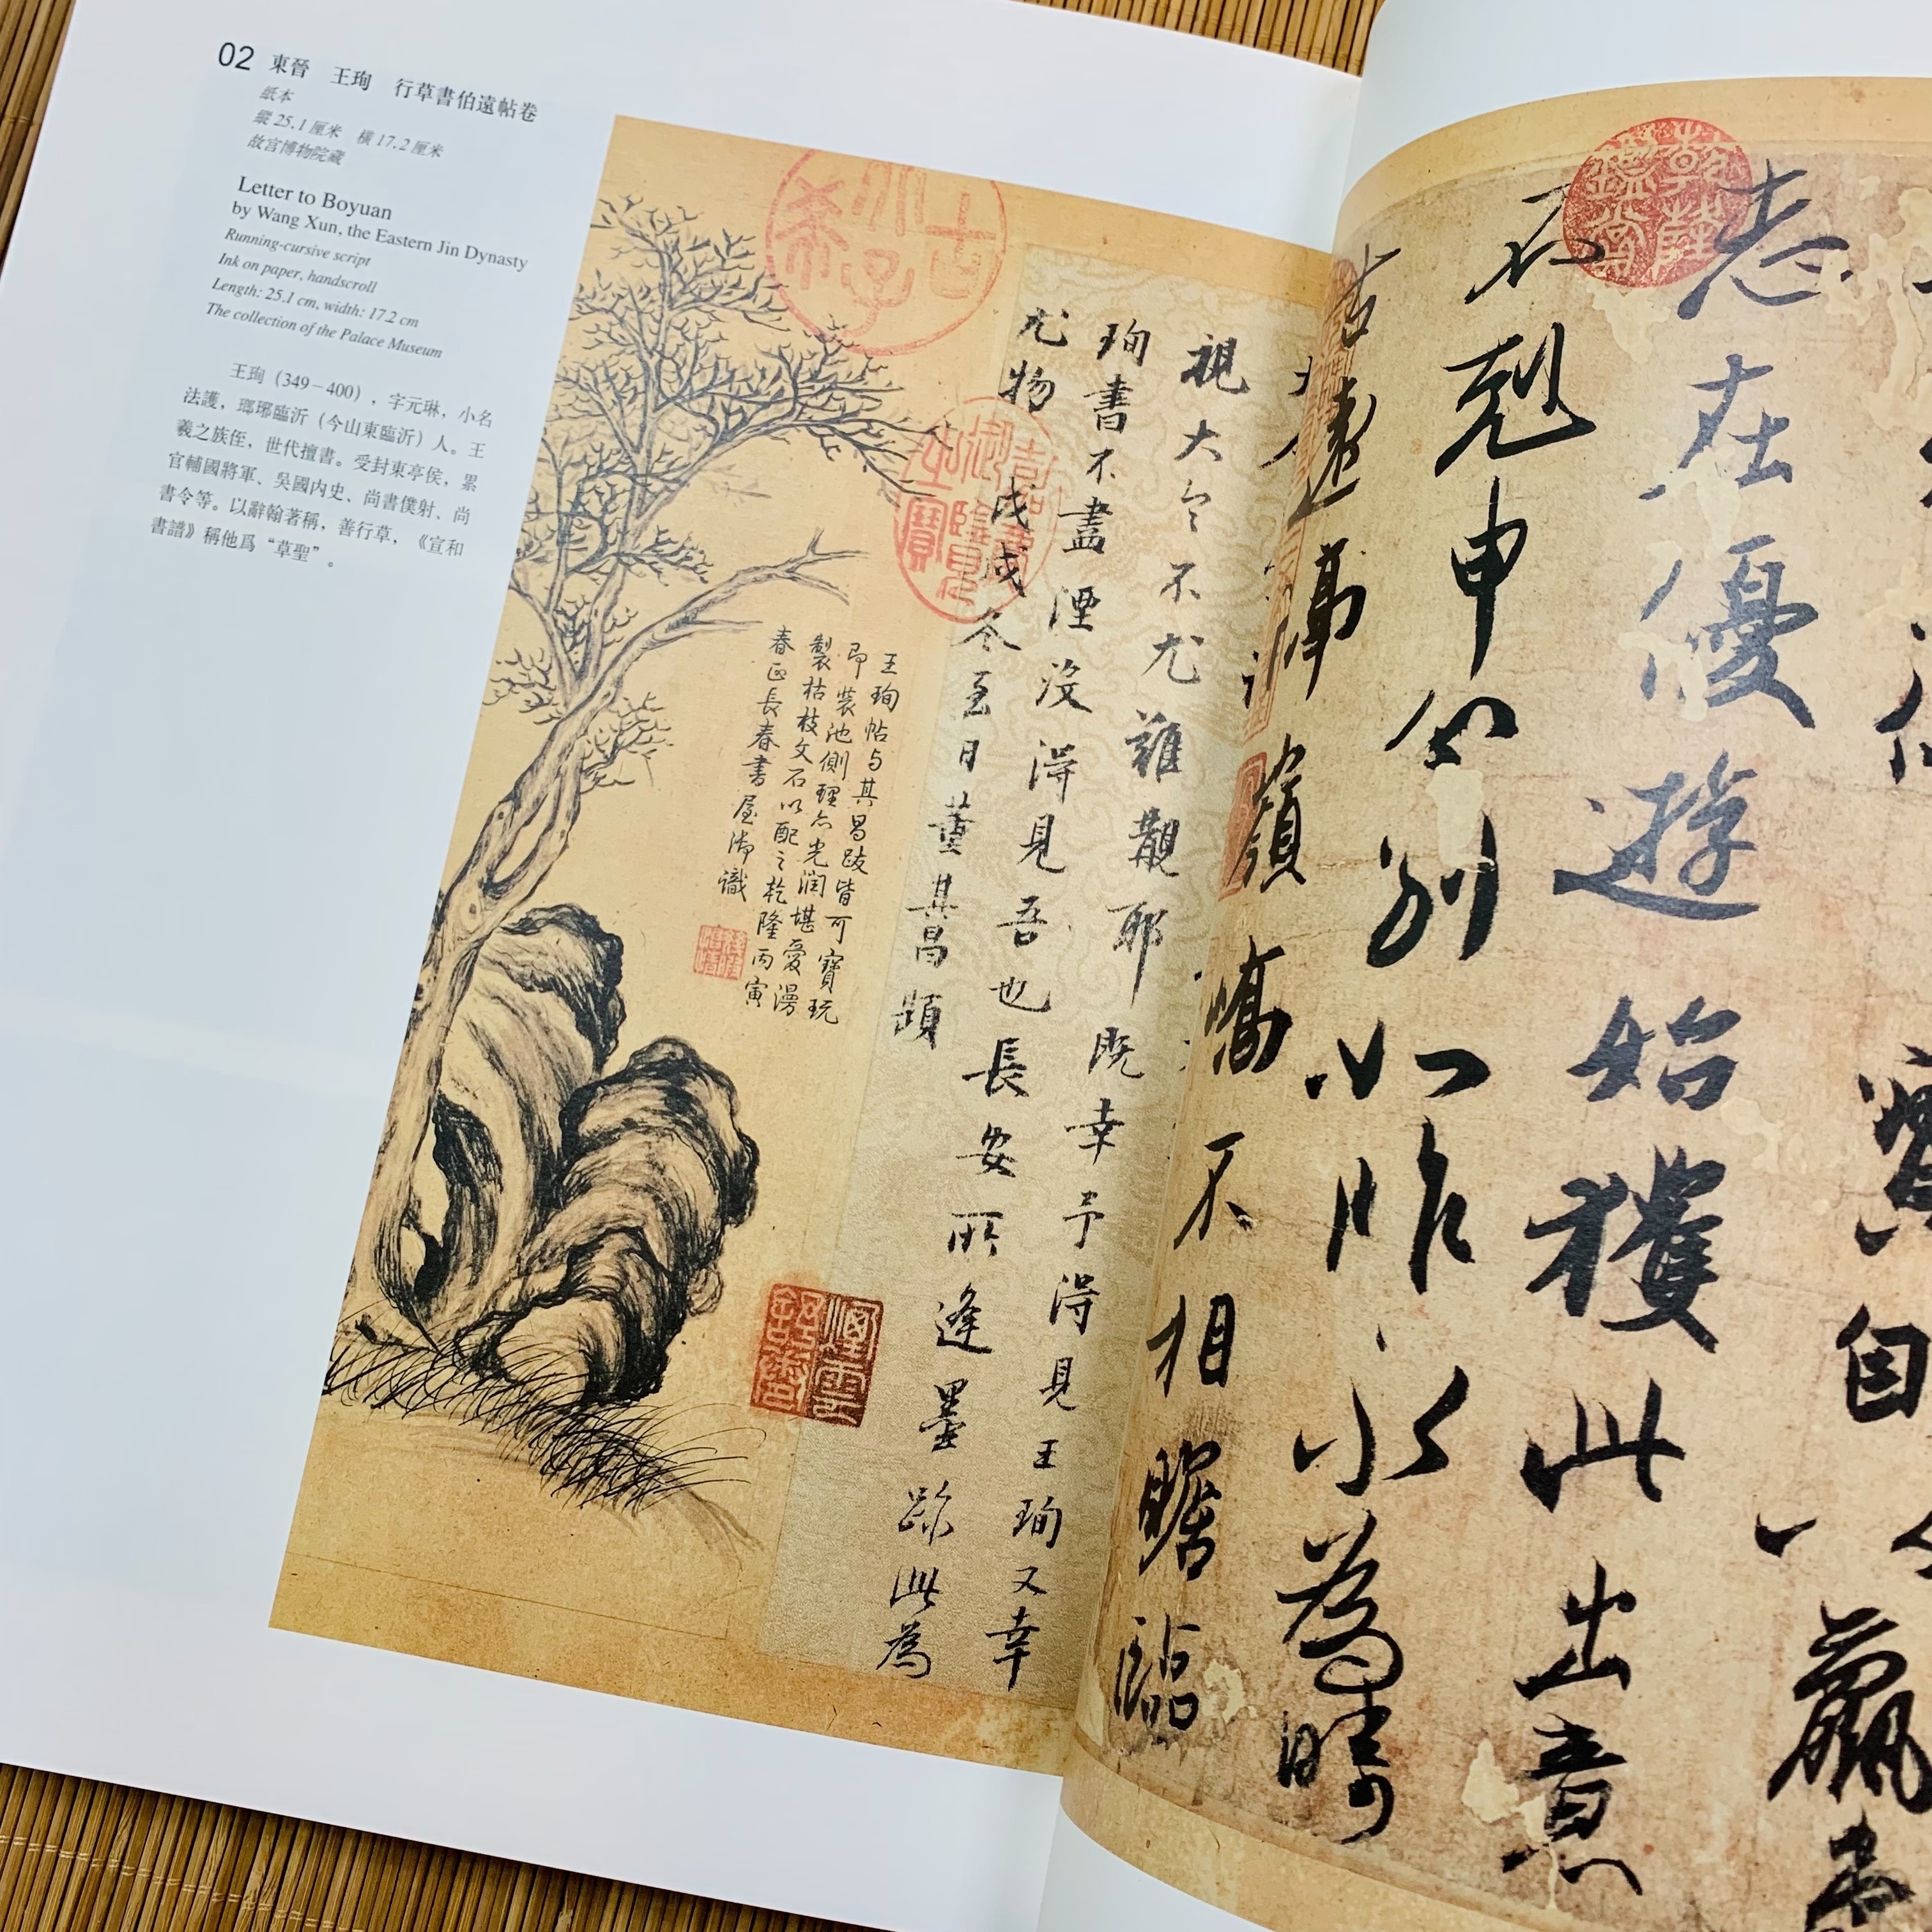 02 東晉 王珣 行草書伯遠帖卷
紙本
縱 25.1 厘米 橫 17.2 厘米
故宮博物院藏
Letter to Boyuan
by Wang Xun, the Eastern Jin Dynasty
Running-cursive script
Ink on paper, handscroll
Length: 25.1 cm, width: 17.2 cm
The collection of the Palace Museum
王珣（349－400），字元琳，小名
法護，瑯琊臨沂（今山東臨沂）人。王
羲之族侄，世代擅書。受封東亭侯，累
官輔國將軍、吳國内史、尚書僕射、尚
書令等。以辭翰著稱，善行草，《宣和
書譜》稱他爲“草聖”。
志在優遊始獲此出意
不剋申分別如昨永為疇
古遠隔嶺嶠不相瞻臨
視大令不尤難覯耶既幸予得見王珣又幸
珣書不盡湮沒得見吾也長安所逢墨跡此為
尤物戊戌冬至日董其昌題
王珣帖与其昌跋皆可寶玩
即裝池側理亦光潤堪愛漫
製枯枝文石以配之乾隆丙寅
春正長春書屋御識
古希天子
嘉慶御覽之寶
乾隆鑑賞